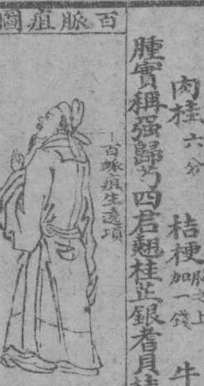 肉桂六分 桔梗加一錢 牛
腫實稱强歸芍四君翹桂芷銀耆貝
百脈疽圖
百脈疽生遶項